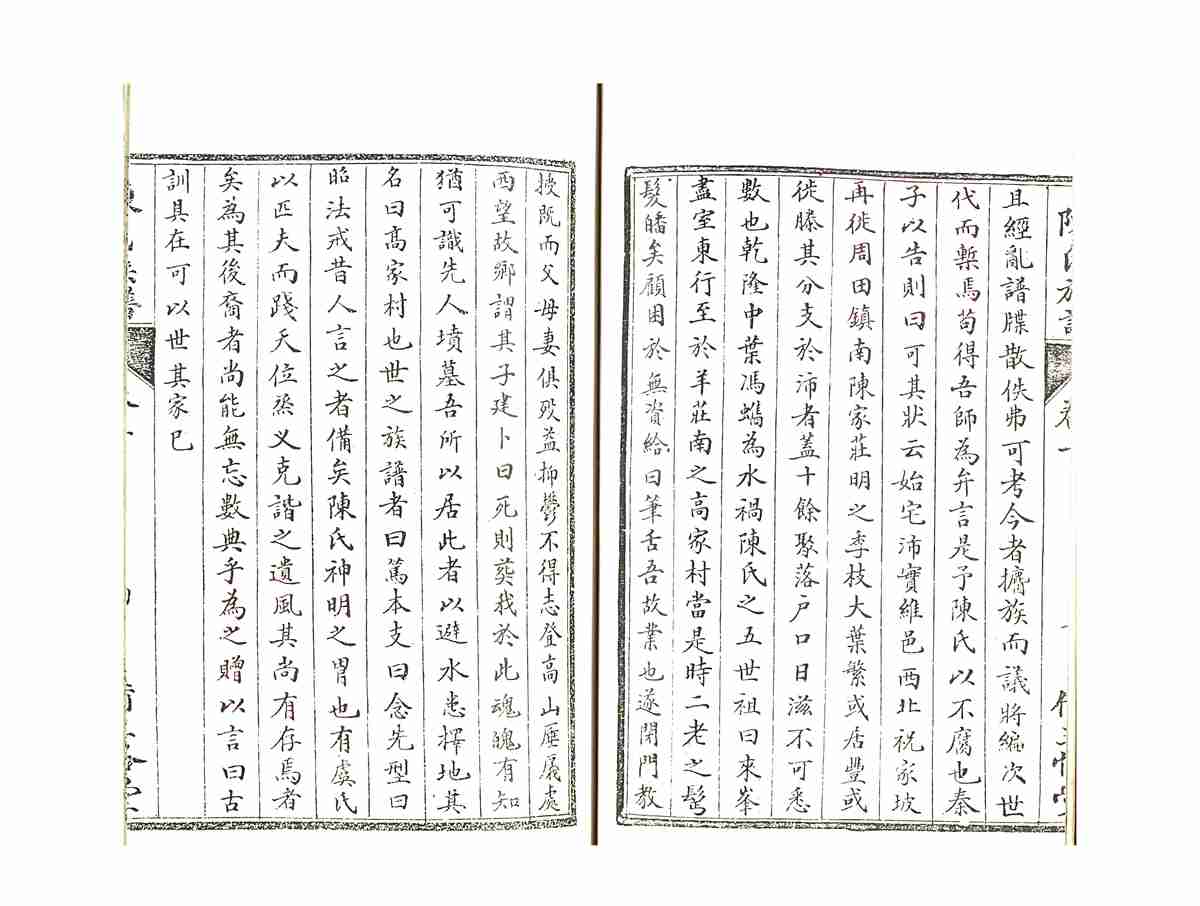 陳氏族譜 卷一
且經亂譜牒散佚弗可考今者擕族而議將編次世
代而槧焉苟得吾師為弁言是予陳氏以不腐也秦
子以告則曰可其狀云始宅沛實維邑西北祝家坡
再徙周田鎮南陳家莊明之季枝大葉繁或居豐或
徙滕其分支於沛者蓋十餘聚落户口日滋不可悉
數也乾隆中葉馮蟂為水禍陳氏之五世祖曰來峯
盡室東行至於羊莊南之高家村當是時二老之髩
髮皤矣顧困於無資給曰筆舌吾故業也遂閉門教
授既而父母妻俱歿益抑鬱不得志登高山厜㕒處
西望故鄉謂其子建卜曰死則葵我於此魂魄有知
猶可識先人墳墓吾所以居此者以避水患擇地其
名曰髙家村也世之族譜者曰篤本支曰念先型曰
昭法戒昔人言之者備矣陳氏神明之冑也有虞氏
以匹夫而踐天位烝乂克諧之遺風其尚有存焉者
矣為其後裔者尚能無忘數典乎為之贈以言曰古
訓具在可以世其家已